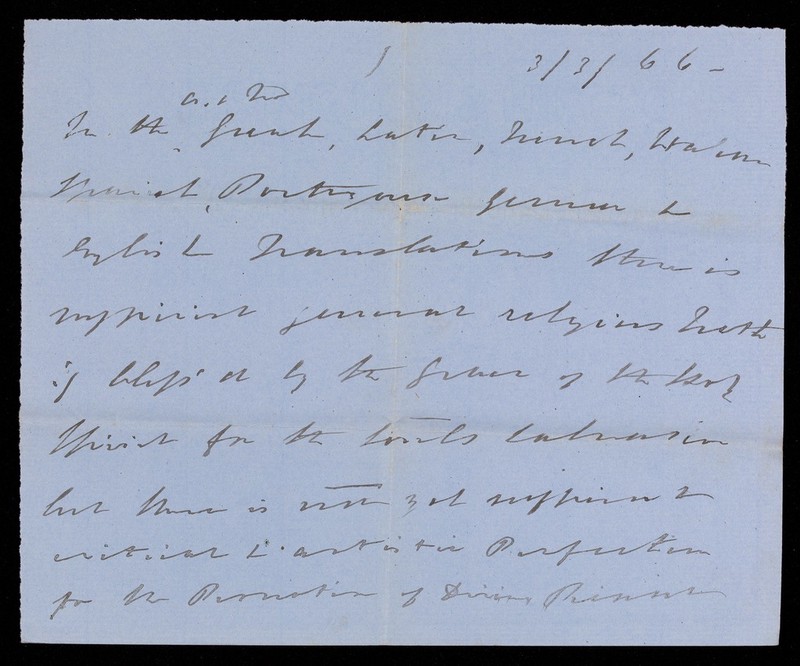 3/3/66 -
In the Greek, Latin, French, Italian
Spanish, Portuguese German &
English Translations there is
sufficient general religious Truth
if bless'd by the Grace of the Holy
Spirit for the Soul's Salvation
but there is not yet sufficient
critical & artistic Perfection
for the Promotion of Divine